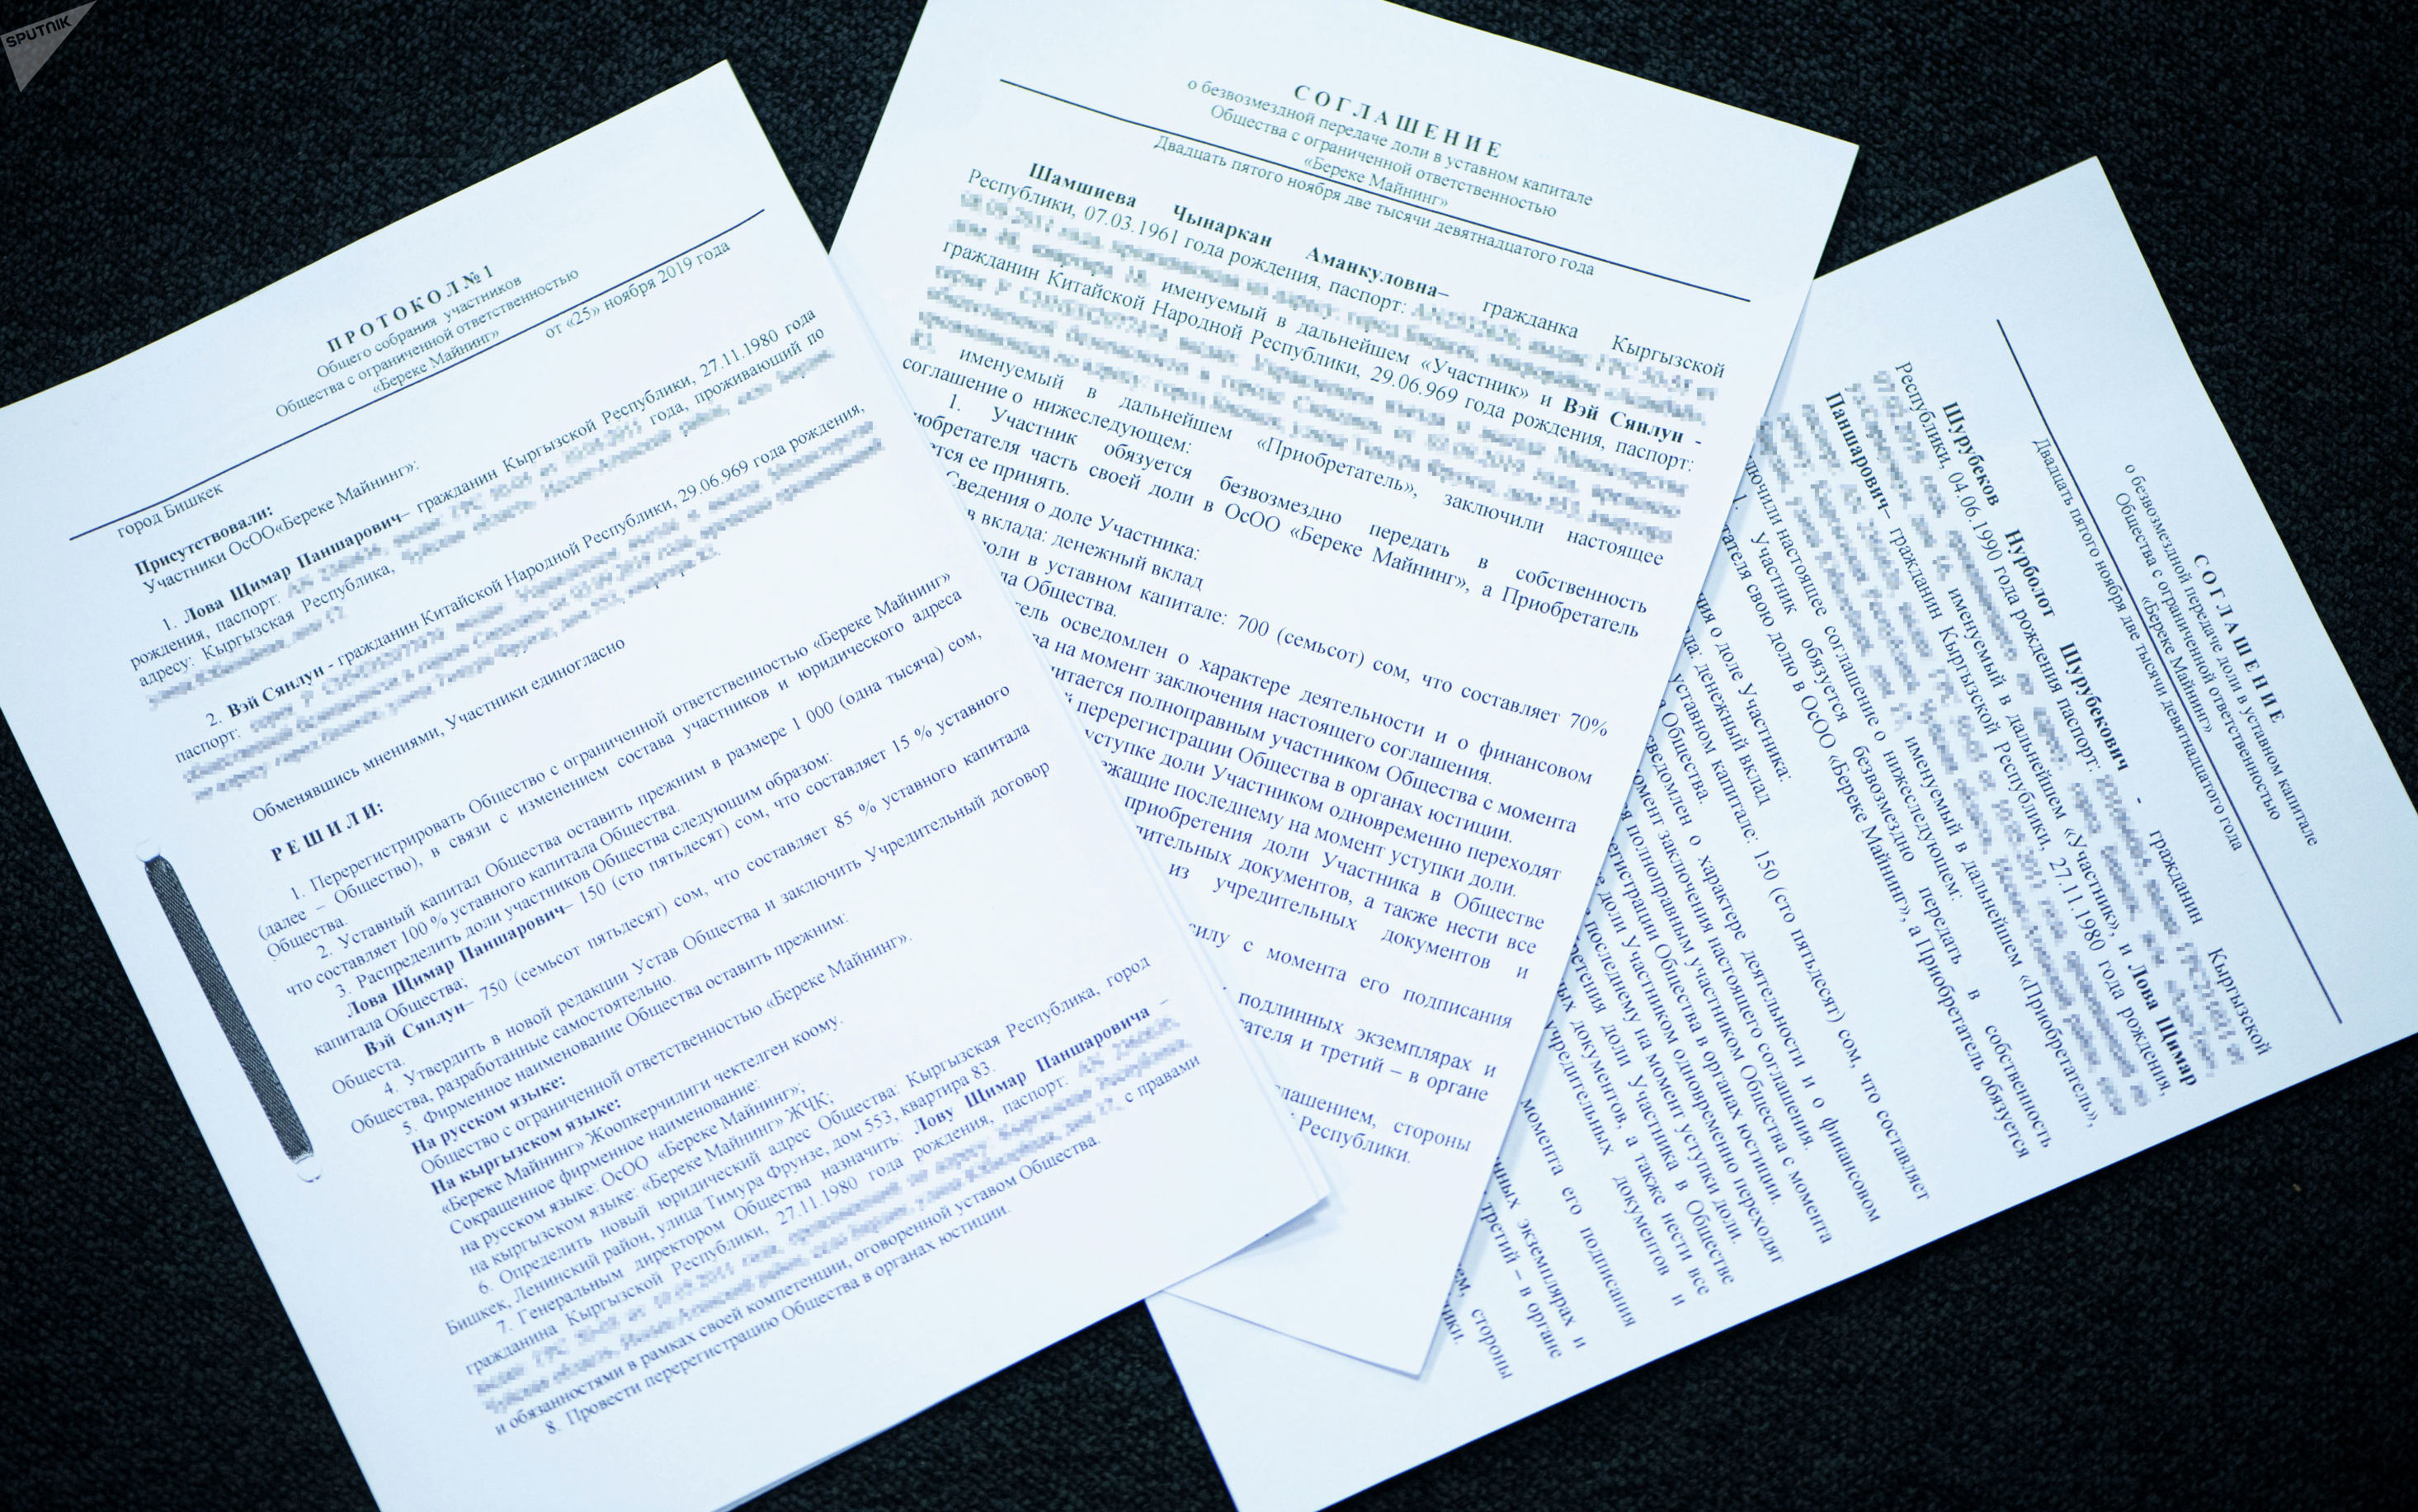 SPUTNIK
ПРОТОКОЛ № 1
Общего собрания участников
Общества с ограниченной ответственностью
«Береке Майнинг»
город Бишкек
от «25» ноября 2019 года
Присутствовали:
Участники ОсОО«Береке Майнинг»:
1. Лова Щимар Паншарович– гражданин Кыргызской Республики, 27.11.1980 года
рождения, паспорт: года, проживающий по
адресу: Кыргызская Республика,
2. Вэй Сянлун - гражданин Китайской Народной Республики, 29.06.969 года рождения,
паспорт:
Обменявшись мнениями, Участники единогласно
РЕШИЛИ:
1. Перерегистрировать Общество с ограниченной ответственностью «Береке Майнинг»
(далее – Общество), в связи с изменением состава участников и юридического адреса
Общества.
2. Уставный капитал Общества оставить прежним в размере 1 000 (одна тысяча) сом,
что составляет 100 % уставного капитала Общества.
3. Распределить доли участников Общества следующим образом:
Лова Щимар Паншарович– 150 (сто пятьдесят) сом, что составляет 15 % уставного
капитала Общества;
Вэй Сянлун– 750 (семьсот пятьдесят) сом, что составляет 85 % уставного капитала
Обществa.
4. Утвердить в новой редакции Устав Общества и заключить Учредительный договор
Общества, разработанные самостоятельно.
5. Фирменное наименование Общества оставить прежним:
На русском языке:
Общество с ограниченной ответственностью «Береке Майнинг».
На кыргызском языке:
«Береке Майнинг» Жоопкерчилиги чектелген коому.
Сокращенное фирменное наименование:
на русском языке: ОсОО «Береке Майнинг»;
на кыргызском языке: «Береке Майнинг» ЖЧК;
6. Определить новый юридический адрес Общества: Кыргызская Республика, город
Бишкек, Ленинский район, улица Тимура Фрунзе, дом 553, квартира 83.
7. Генеральным директором Общества назначить: Лову Щимар Паншаровича –
гражданина Кыргызской Республики, 27.11.1980 года рождения, паспорт:
с правами
и обязанностями в рамках своей компетенции, оговоренной уставом Общества.
8. Провести перерегистрацию Общества в органах юстиции.
СОГЛАШЕНИЕ
о безвозмездной передаче доли в уставном капитале
Общества с ограниченной ответственностью
«Береке Майнинг»
Двадцать пятого ноября две тысячи девятнадцатого года
Шамшиева Чынаркан Аманкуловна– гражданка Кыргызской
Республики, 07.03.1961 года рождения, паспорт:
именуемый в дальнейшем «Участник» и Вэй Сянлун -
гражданин Китайской Народной Республики, 29.06.969 года рождения, паспорт:
именуемый в дальнейшем «Приобретатель», заключили настоящее
соглашение о нижеследующем:
1. Участник обязуется безвозмездно передать в собственность
иобретателя часть своей доли в ОсОО «Береке Майнинг», а Приобретатель
ется ее принять.
Сведения о доле Участника:
в вклада: денежный вклад
доли в уставном капитале: 700 (семьсот) сом, что составляет 70%
ла Общества.
тель осведомлен о характере деятельности и о финансовом
ва на момент заключения настоящего соглашения.
читается полноправным участником Общества с момента
й перерегистрации Общества в органах юстиции.
уступке доли Участником одновременно переходят
ежащие последнему на момент уступки доли.
приобретения доли Участника в Обществе
дительных документов, а также нести все
из учредительных документов и
силу с момента его подписания
подлинных экземплярах и
ателя и третий – в органе
глашением, стороны
Республики.
СОГЛАШЕНИЕ
о безвозмездной передаче доли в уставном капитале
Общества с ограниченной ответственностью
«Береке Майнинг»
Двадцать пятого ноября две тысячи девятнадцатого года
Шурубеков Нурболот Шурубекович - гражданин Кыргызской
Республики, 04.06.1990 года рождения паспорт:
именуемый в дальнейшем «Участник», и Лова Щимар
Паншарович– гражданин Кыргызской Республики, 27.11.1980 года рождения,
именуемый в дальнейшем «Приобретатель»,
ключили настоящее соглашение о нижеследующем:
1. Участник обязуется безвозмездно передать в собственность
тателя свою долю в ОсОО «Береке Майнинг», а Приобретатель обязуется
ния о доле Участника:
да: денежный вклад
уставном капитале: 150 (сто пятьдесят) сом, что составляет
а Общества.
сведомлен о характере деятельности и о финансовом
омент заключения настоящего соглашения.
я полноправным участником Общества с момента
егистрации Общества в органах юстиции.
е доли Участником одновременно переходят
е последнему на момент уступки доли.
ретения доли Участника в Обществе
ных документов, а также нести все
учредительных документов и
момента его подписания
нных экземплярах и
третий – в органе
ем, стороны
ики.